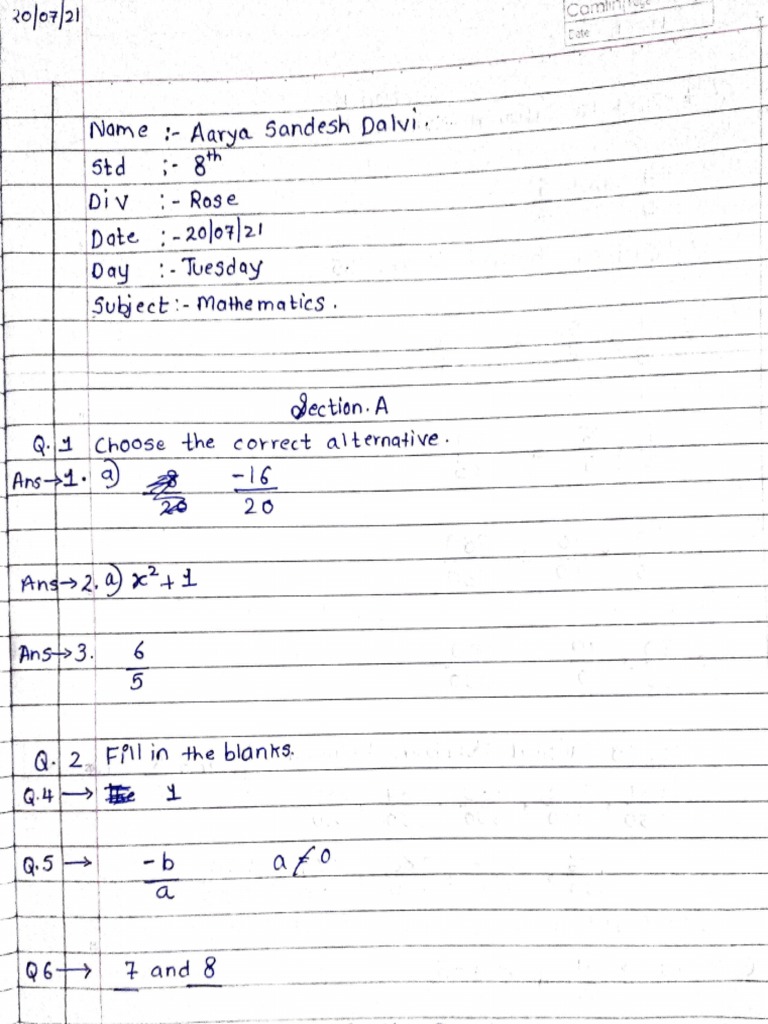 20/07/21
Camlin Page
Date
Name :- Aarya Sandesh Dalvi.
Std :- 8th
Div :- Rose
Date :- 20/07/21
Day :- Tuesday
Subject :- Mathematics.
Section. A
Q. 1 Choose the correct alternative.
Ans→1. a) -16/20
Ans→2. a) x²+1
Ans→3. 6/5
Q. 2 Fill in the blanks.
Q.4 → 1
Q.5 → -b/a a≠0
Q6 → 7 and 8